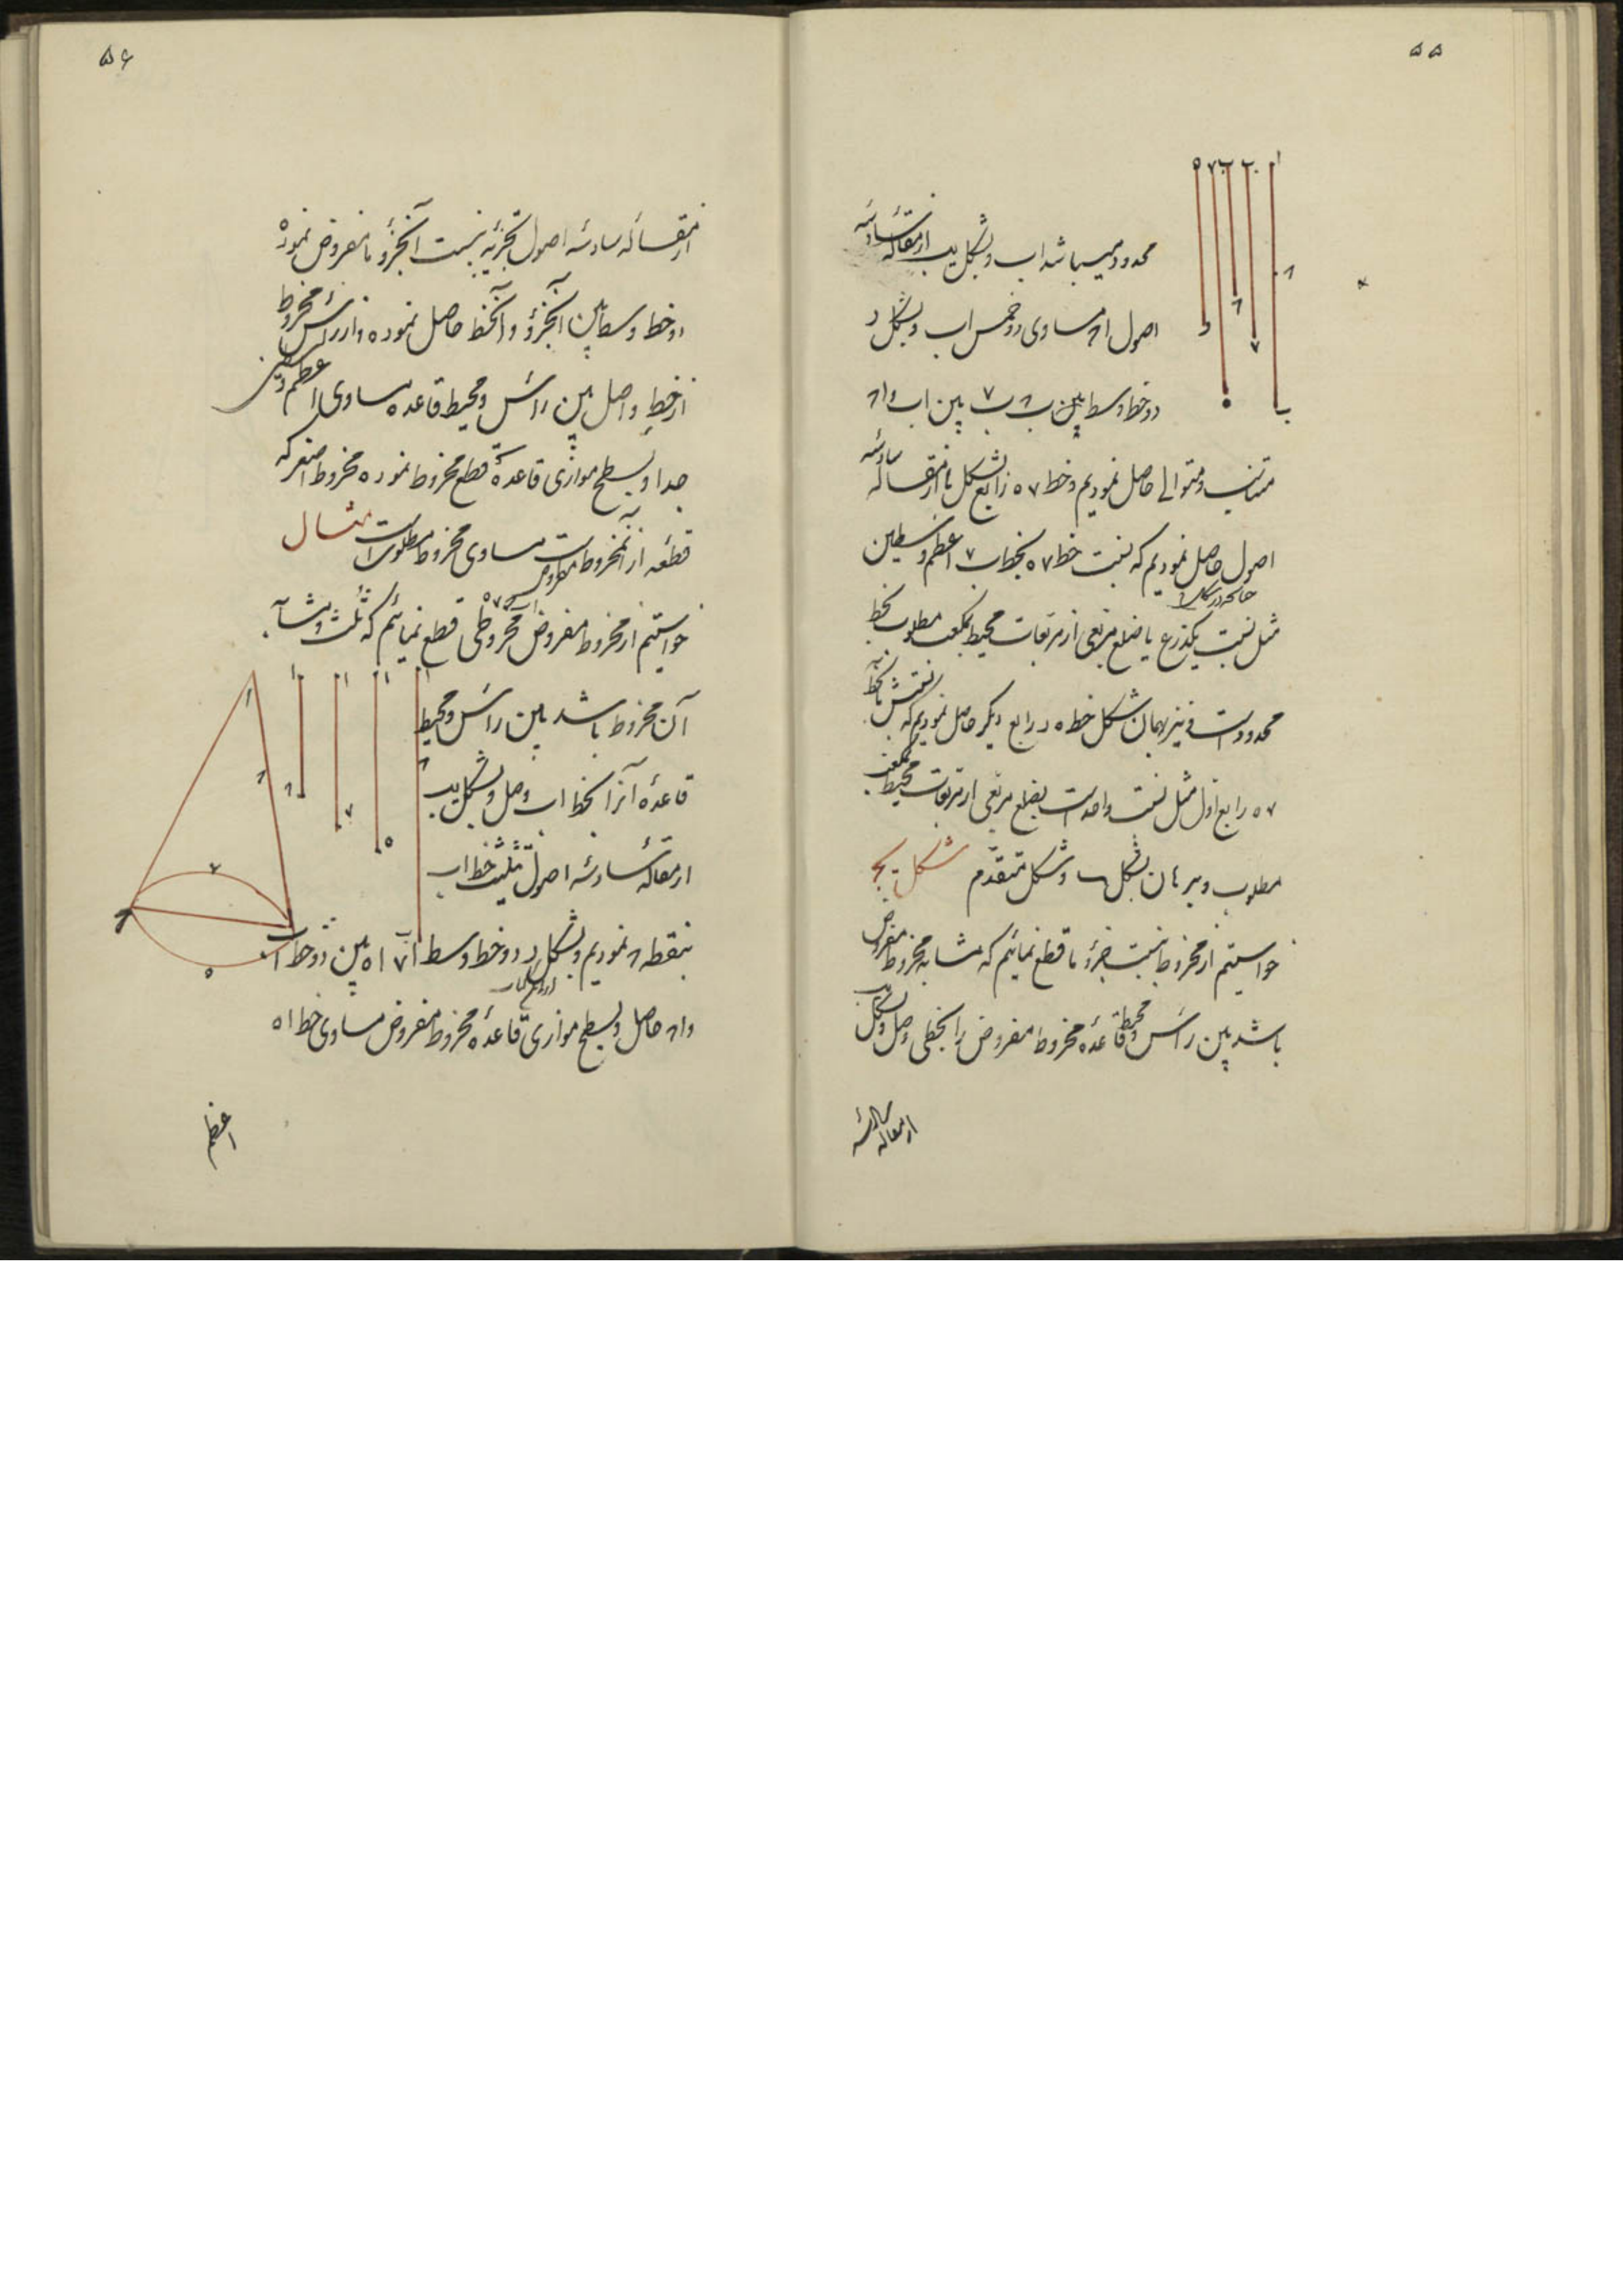 ۵۵
محدود میباشد اب و بشکل یب از مقاله سادسه
اصول ا۸ مساوی دو خمس اب و بشکل د
دو خط وسط ب۸ ب۷ بین اب و ا۸
متناسب و متوالی حاصل نمودیم و خط ۷ ه رابع بشکل یا از مقاله سادسه
اصول حاصل نمودیم که نسبت خط ۷ ه بخط ب ۷ اعظم وسطین
مثل نسبت یکذرع یا ضلع مربعی از مربعات محیط بمکعب مطلوب بخط
محدود است و نیز بهمان شکل خط ه د رابع دیگر حاصل نمودیم که نسبتش بخط
۷ ه رابع اول مثل نسبت واحد است بضلع مربعی از مربعات محیط بمکعب
مطلوب و برهان بشکل و شکل متقدم شکل یج
خواستیم از مخروط بنسبت جزؤ ما قطع نمائیم که مشابه مخروط مفروض
باشد بین رأس و محیط قاعده مخروط مفروض را بخطی وصل و بشکل یب
از مقاله سادسه
۵۶
از مقاله سادسه اصول تجزیه بنسبت آنجزؤ ما مفروض نموده
دو خط وسط بین آنجزؤ و آنخط حاصل نموده و از رأس مخروط
از خط واصل بین رأس و محیط قاعده مساوی اعظم وسطین
جدا و بسطح موازی قاعده قطع مخروط نموده مخروط اصغر که
قطعه از آنمخروط مفروض است مساوی مخروط مطلوب است مثال
خواستیم از مخروط مفروض مخروطی قطع نمائیم که ثلث و مشابه
آن مخروط باشد بین رأس و محیط
قاعده آنرا بخط اب وصل و بشکل یب
از مقاله سادسه اصول تثلیث خط اب
بنقطه ۸ نمودیم و بشکل د دو خط وسط ا۷ ا ه بین دو خط اب
و ا۸ حاصل و بسطح موازی قاعده مخروط مفروض مساوی خط ا ه
اعظم